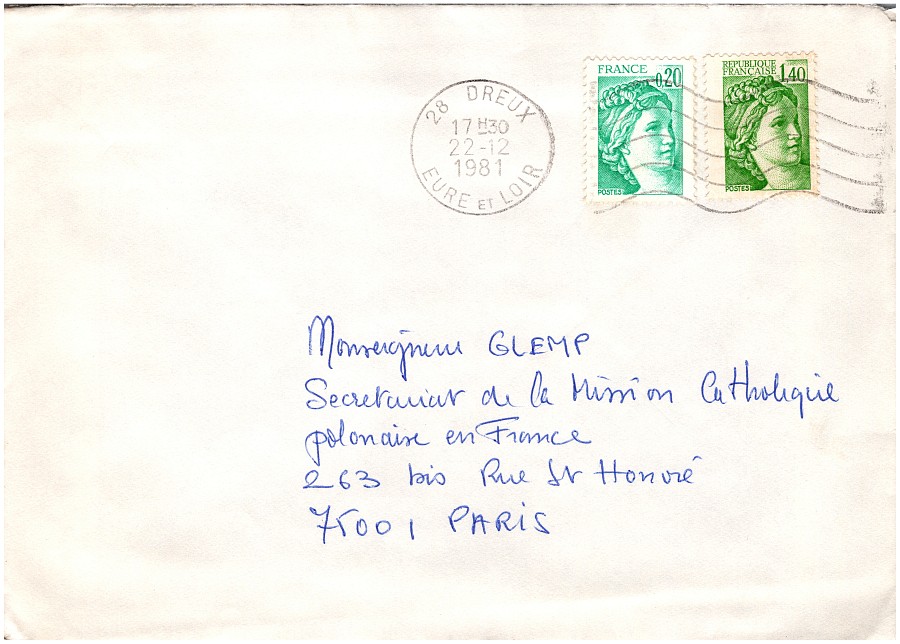 28 DREUX
17H30
22-12
1981
EURE ET LOIR
FRANCE 0,20
POSTES
REPUBLIQUE
FRANÇAISE 1,40
POSTES
Monseigneur GLEMP
Secretariat de la Mission Catholique
polonaise en France
263 bis Rue St Honoré
75001 PARIS